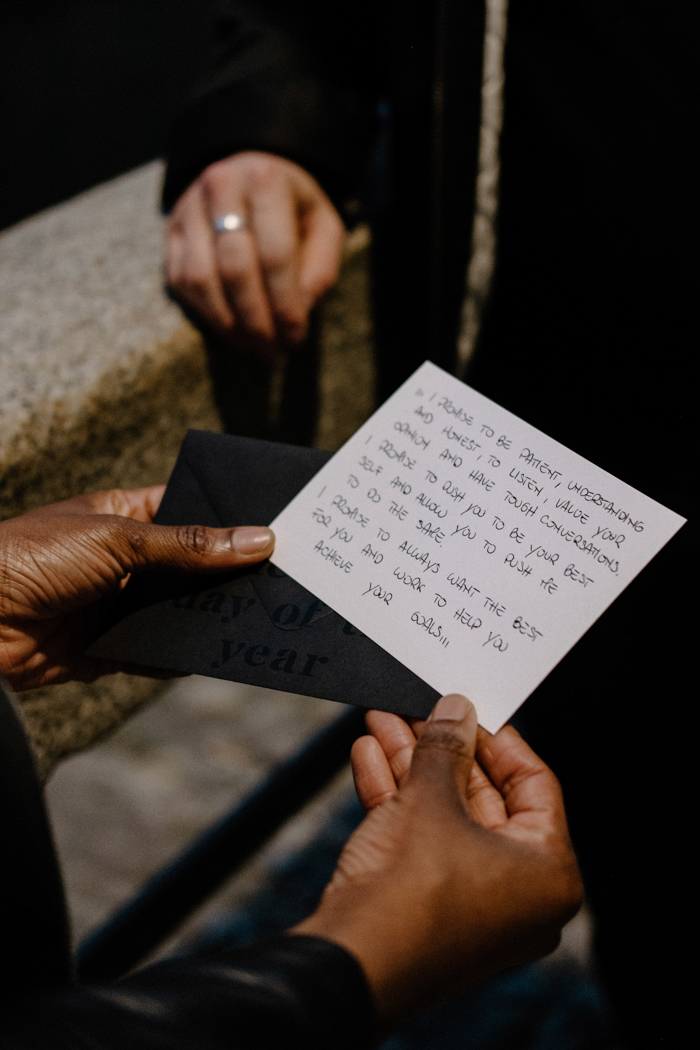 I PROMISE TO BE PATIENT, UNDERSTANDING
AND HONEST, TO LISTEN, VALUE YOUR
OPINION AND HAVE TOUGH CONVERSATIONS.
I PROMISE TO PUSH YOU TO BE YOUR BEST
SELF AND ALLOW YOU TO PUSH ME
TO DO THE SAME.
I PROMISE TO ALWAYS WANT THE BEST
FOR YOU AND WORK TO HELP YOU
ACHIEVE YOUR GOALS!!!
day of
year